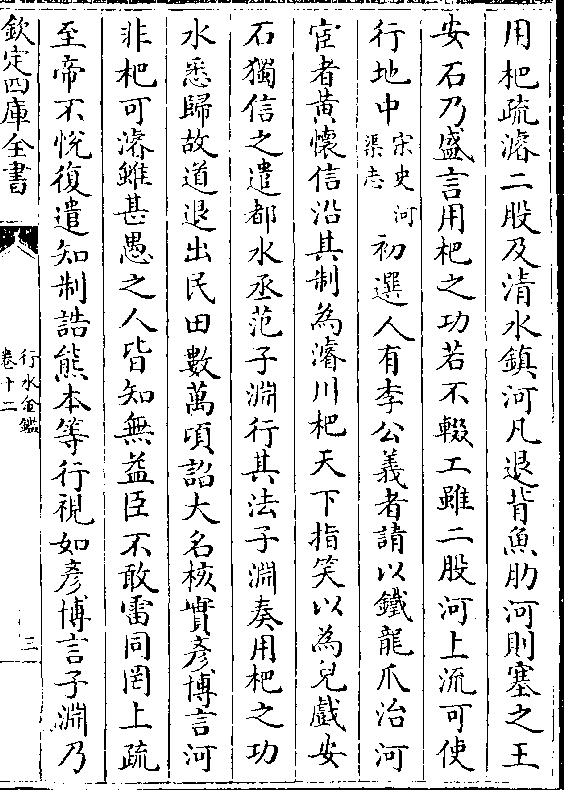 用杷疏濬二股及清水鎮河凡退背魚肋河則塞之王
安石乃盛言用杷之功若不輟工雖二股河上流可使
行地中宋史河渠志初選人有李公義者請以鐵龍爪治河
宦者黃懷信沿其制為濬川杷天下指笑以為兒戲安
石獨信之遣都水丞范子淵行其法子淵奏用杷之功
水悉歸故道退出民田數萬頃詔大名核實彥博言河
非杷可濬雖甚愚之人皆知無益臣不敢雷同罔上疏
至帝不悅復遣知制誥熊本等行視如彥博言子淵乃
欽定四庫全書
行水金鑑
卷十二
三